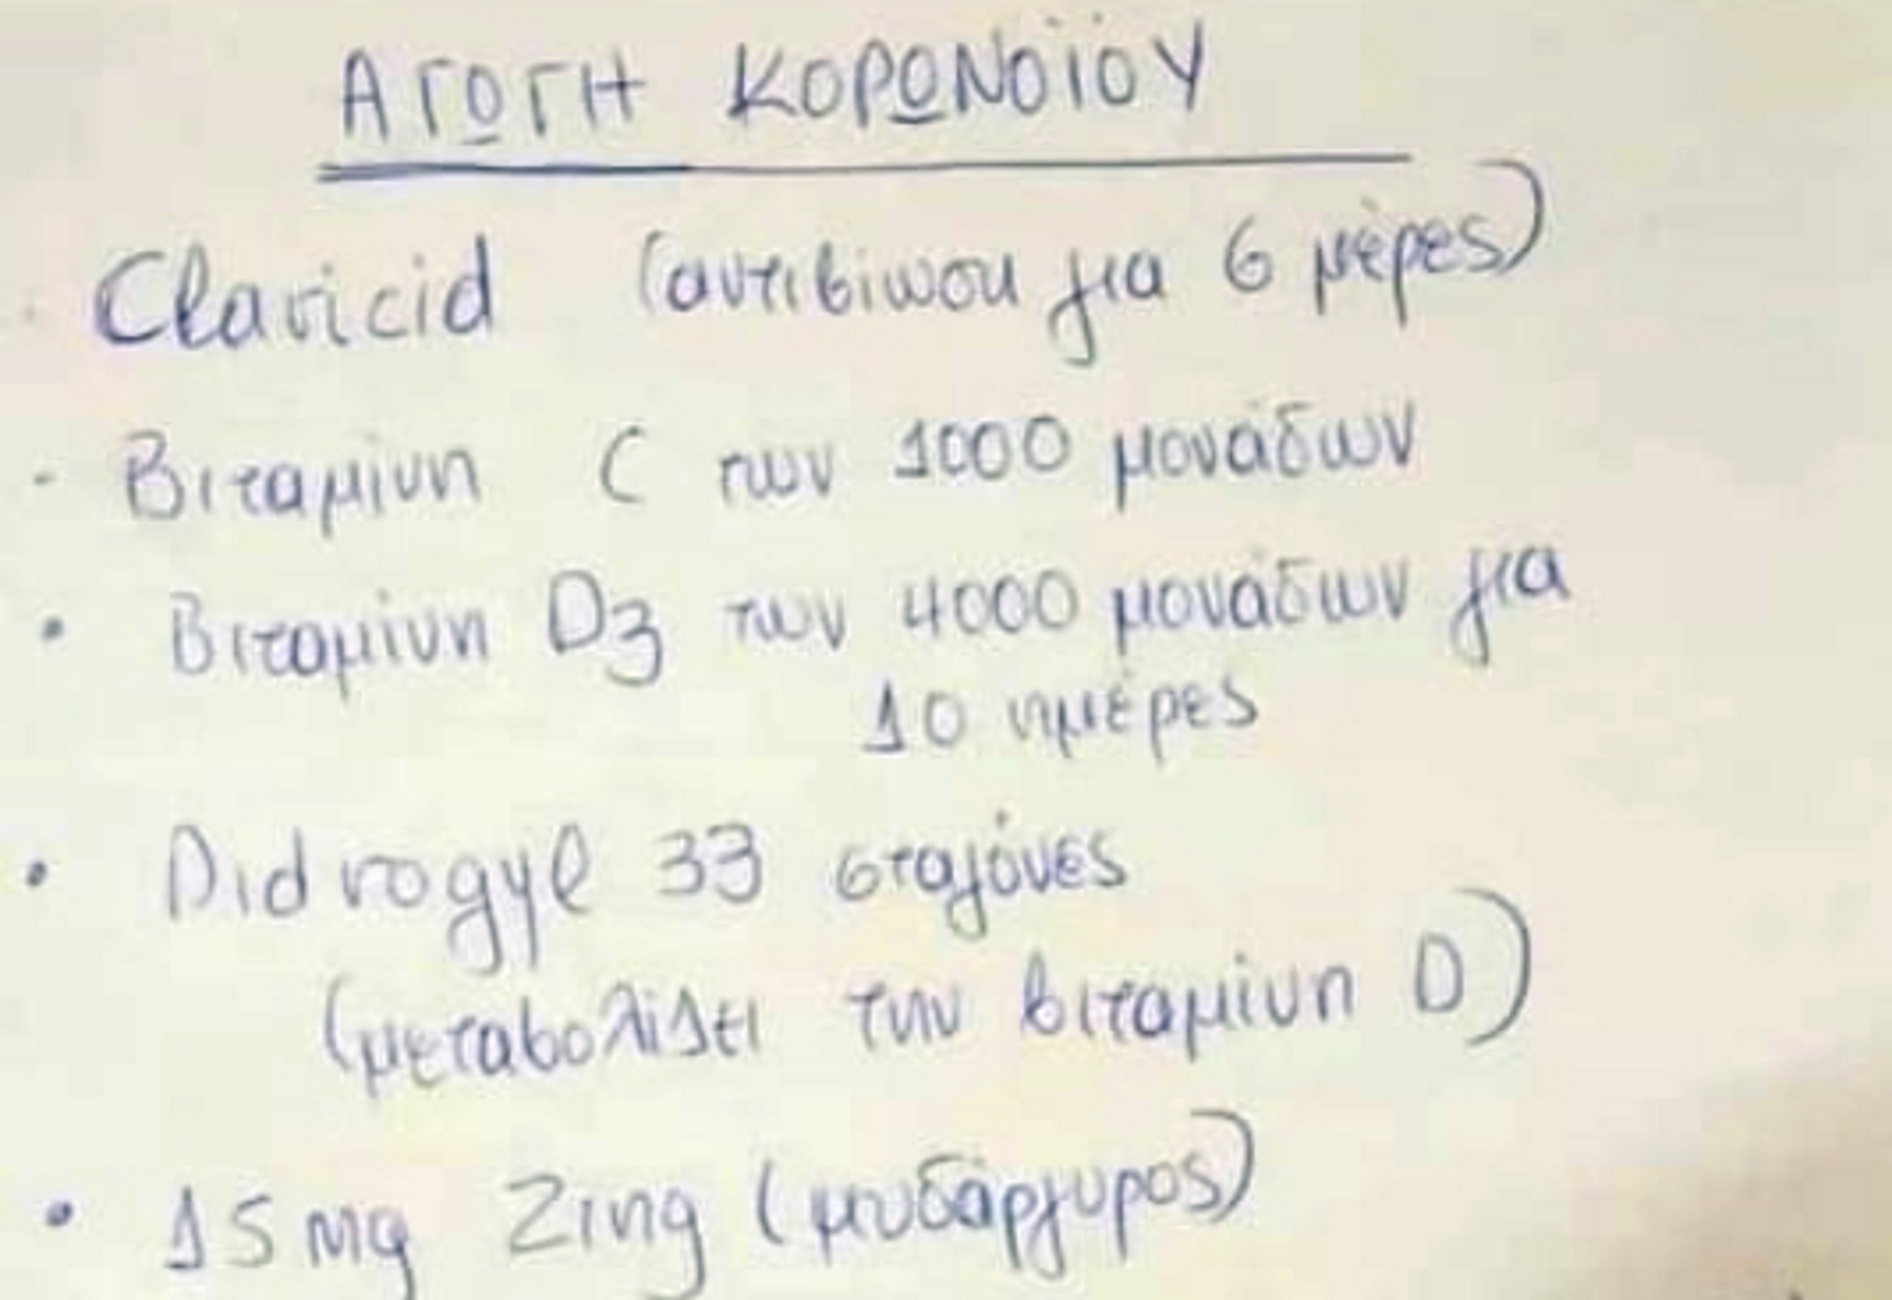 ΑΓΟΓΗ ΚΟΡΟΝΟΪΟΥ
Claricid (αντιβίωση για 6 μέρες)
- Βιταμίνη C των 1000 μονάδων
• Βιταμίνη D3 των 4000 μονάδων για
10 ημέρες
• Didrogyl 33 σταγόνες
(μεταβολίζει την βιταμίνη D)
• 15 mg Zing (μυδάργυρος)